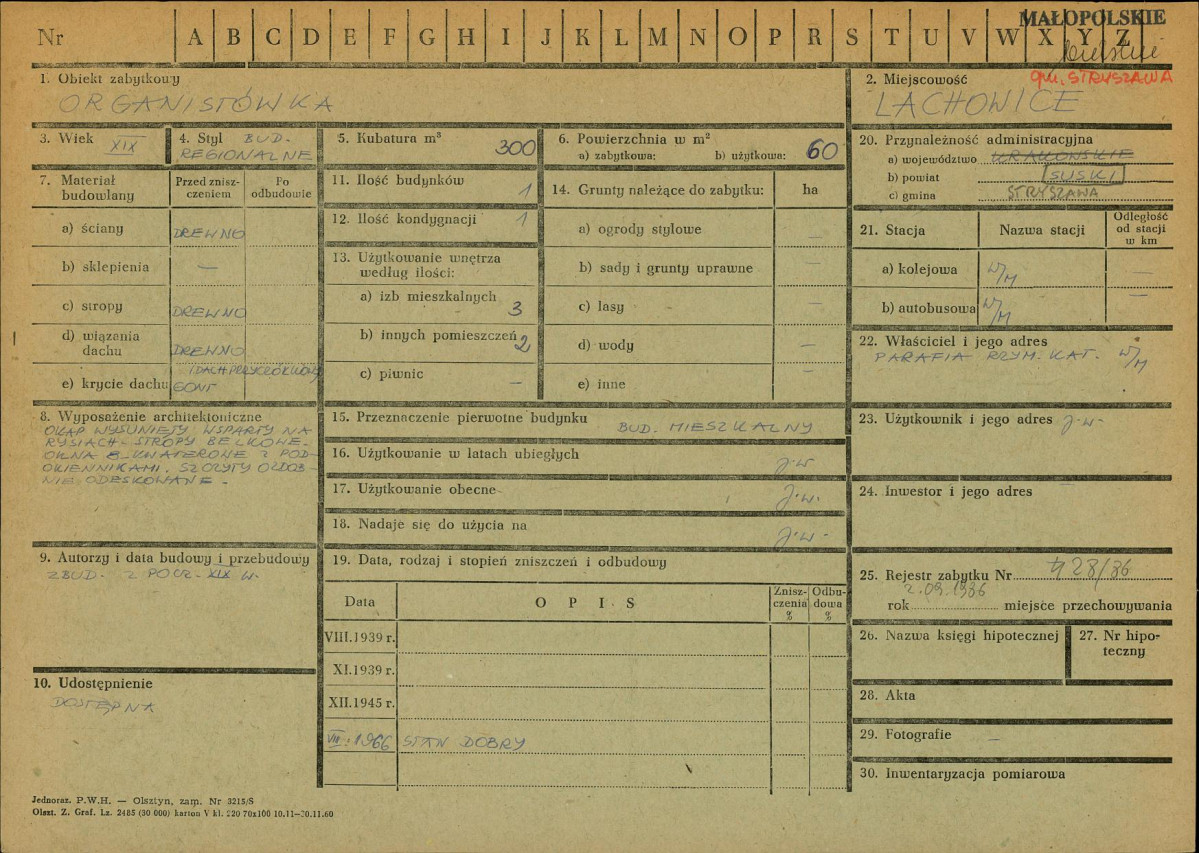 MAŁOPOLSKIE
Nr A B C D E F G H I J K L M N O P R S T U V W X Y Z
bielskie
gm. STRYSZAWA
1. Obiekt zabytkowy
ORGANISTÓWKA
2. Miejscowość
LACHOWICE
3. Wiek XIX
4. Styl BUD.
REGIONALNE
5. Kubatura m³ 300
6. Powierzchnia w m²
a) zabytkowa: b) użytkowa: 60
20. Przynależność administracyjna
a) województwo KRAKOWSKIE
b) powiat SUSKI
c) gmina STRYSZAWA
7. Materiał
budowlany
Przed znisz-
czeniem
Po
odbudowie
a) ściany DREWNO
b) sklepienia —
c) stropy DREWNO
d) wiązania
dachu DREWNO
e) krycie dachu GONT
11. Ilość budynków 1
12. Ilość kondygnacji 1
13. Użytkowanie wnętrza
według ilości:
a) izb mieszkalnych 3
b) innych pomieszczeń 2
c) piwnic —
14. Grunty należące do zabytku: ha
a) ogrody stylowe —
b) sady i grunty uprawne —
c) lasy —
d) wody —
e) inne —
21. Stacja Nazwa stacji
Odległość
od stacji
w km
a) kolejowa W/M —
b) autobusowa W/M —
22. Właściciel i jego adres
PARAFIA RZYM. KAT. W/M
8. Wyposażenie architektoniczne
OKAP WYSUNIĘTY WSPARTY NA
RYSIACH - STROPY BELKOWE -
OKNA 8-KWATEROWE Z POD-
OKIENNIKAMI. SZCZYTY OZDOB-
NIE ODESKOWANE -
15. Przeznaczenie pierwotne budynku
BUD. MIESZKALNY
16. Użytkowanie w latach ubiegłych
j.w
17. Użytkowanie obecne j.w.
18. Nadaje się do użycia na
j.w-
23. Użytkownik i jego adres j-w-
24. Inwestor i jego adres
9. Autorzy i data budowy i przebudowy
ZBUD. Z POCZ. XIX W.
10. Udostępnienie
DOSTĘPNA
19. Data, rodzaj i stopień zniszczeń i odbudowy
Data OPIS
Znisz-
czenia
%
Odbu-
dowa
%
VIII.1939 r.
XI.1939 r.
XII.1945 r.
VII. 1966 STAN DOBRY
25. Rejestr zabytku Nr 428/86
2.09.1986
rok miejsce przechowywania
26. Nazwa księgi hipotecznej
27. Nr hipo-
teczny
28. Akta
29. Fotografie —
30. Inwentaryzacja pomiarowa
Jednoraz. P.W.H. — Olsztyn, zam. Nr 3215/S
Olszt. Z. Graf. Lz. 2485 (30 000) karton V kl. 220 70x100 10.11—30.11.60